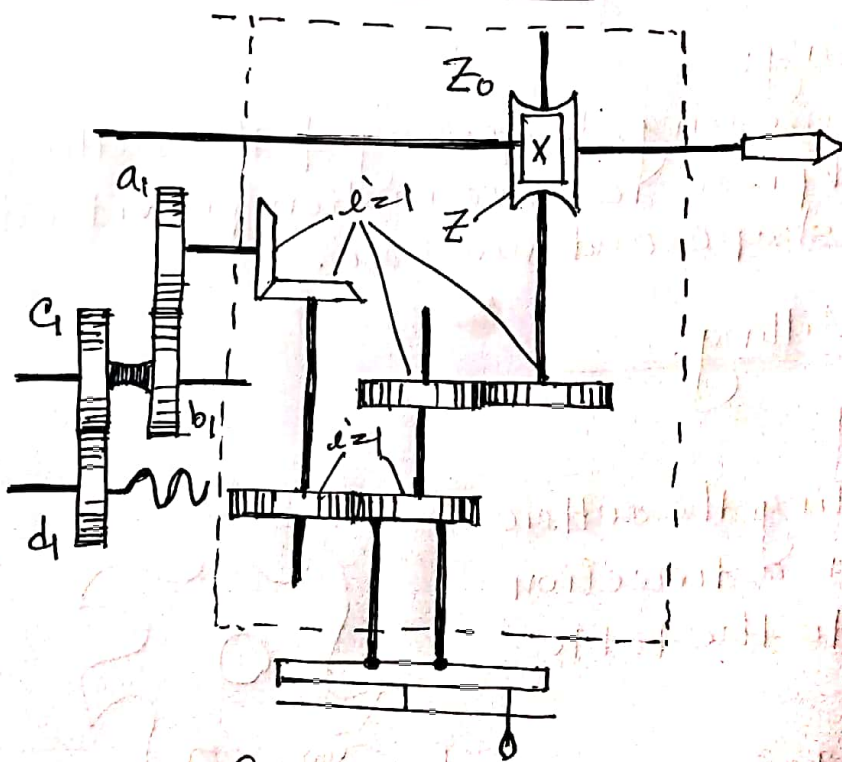 Z₀
X
a₁
i=1
Z
C₁
b₁
i=1
d₁